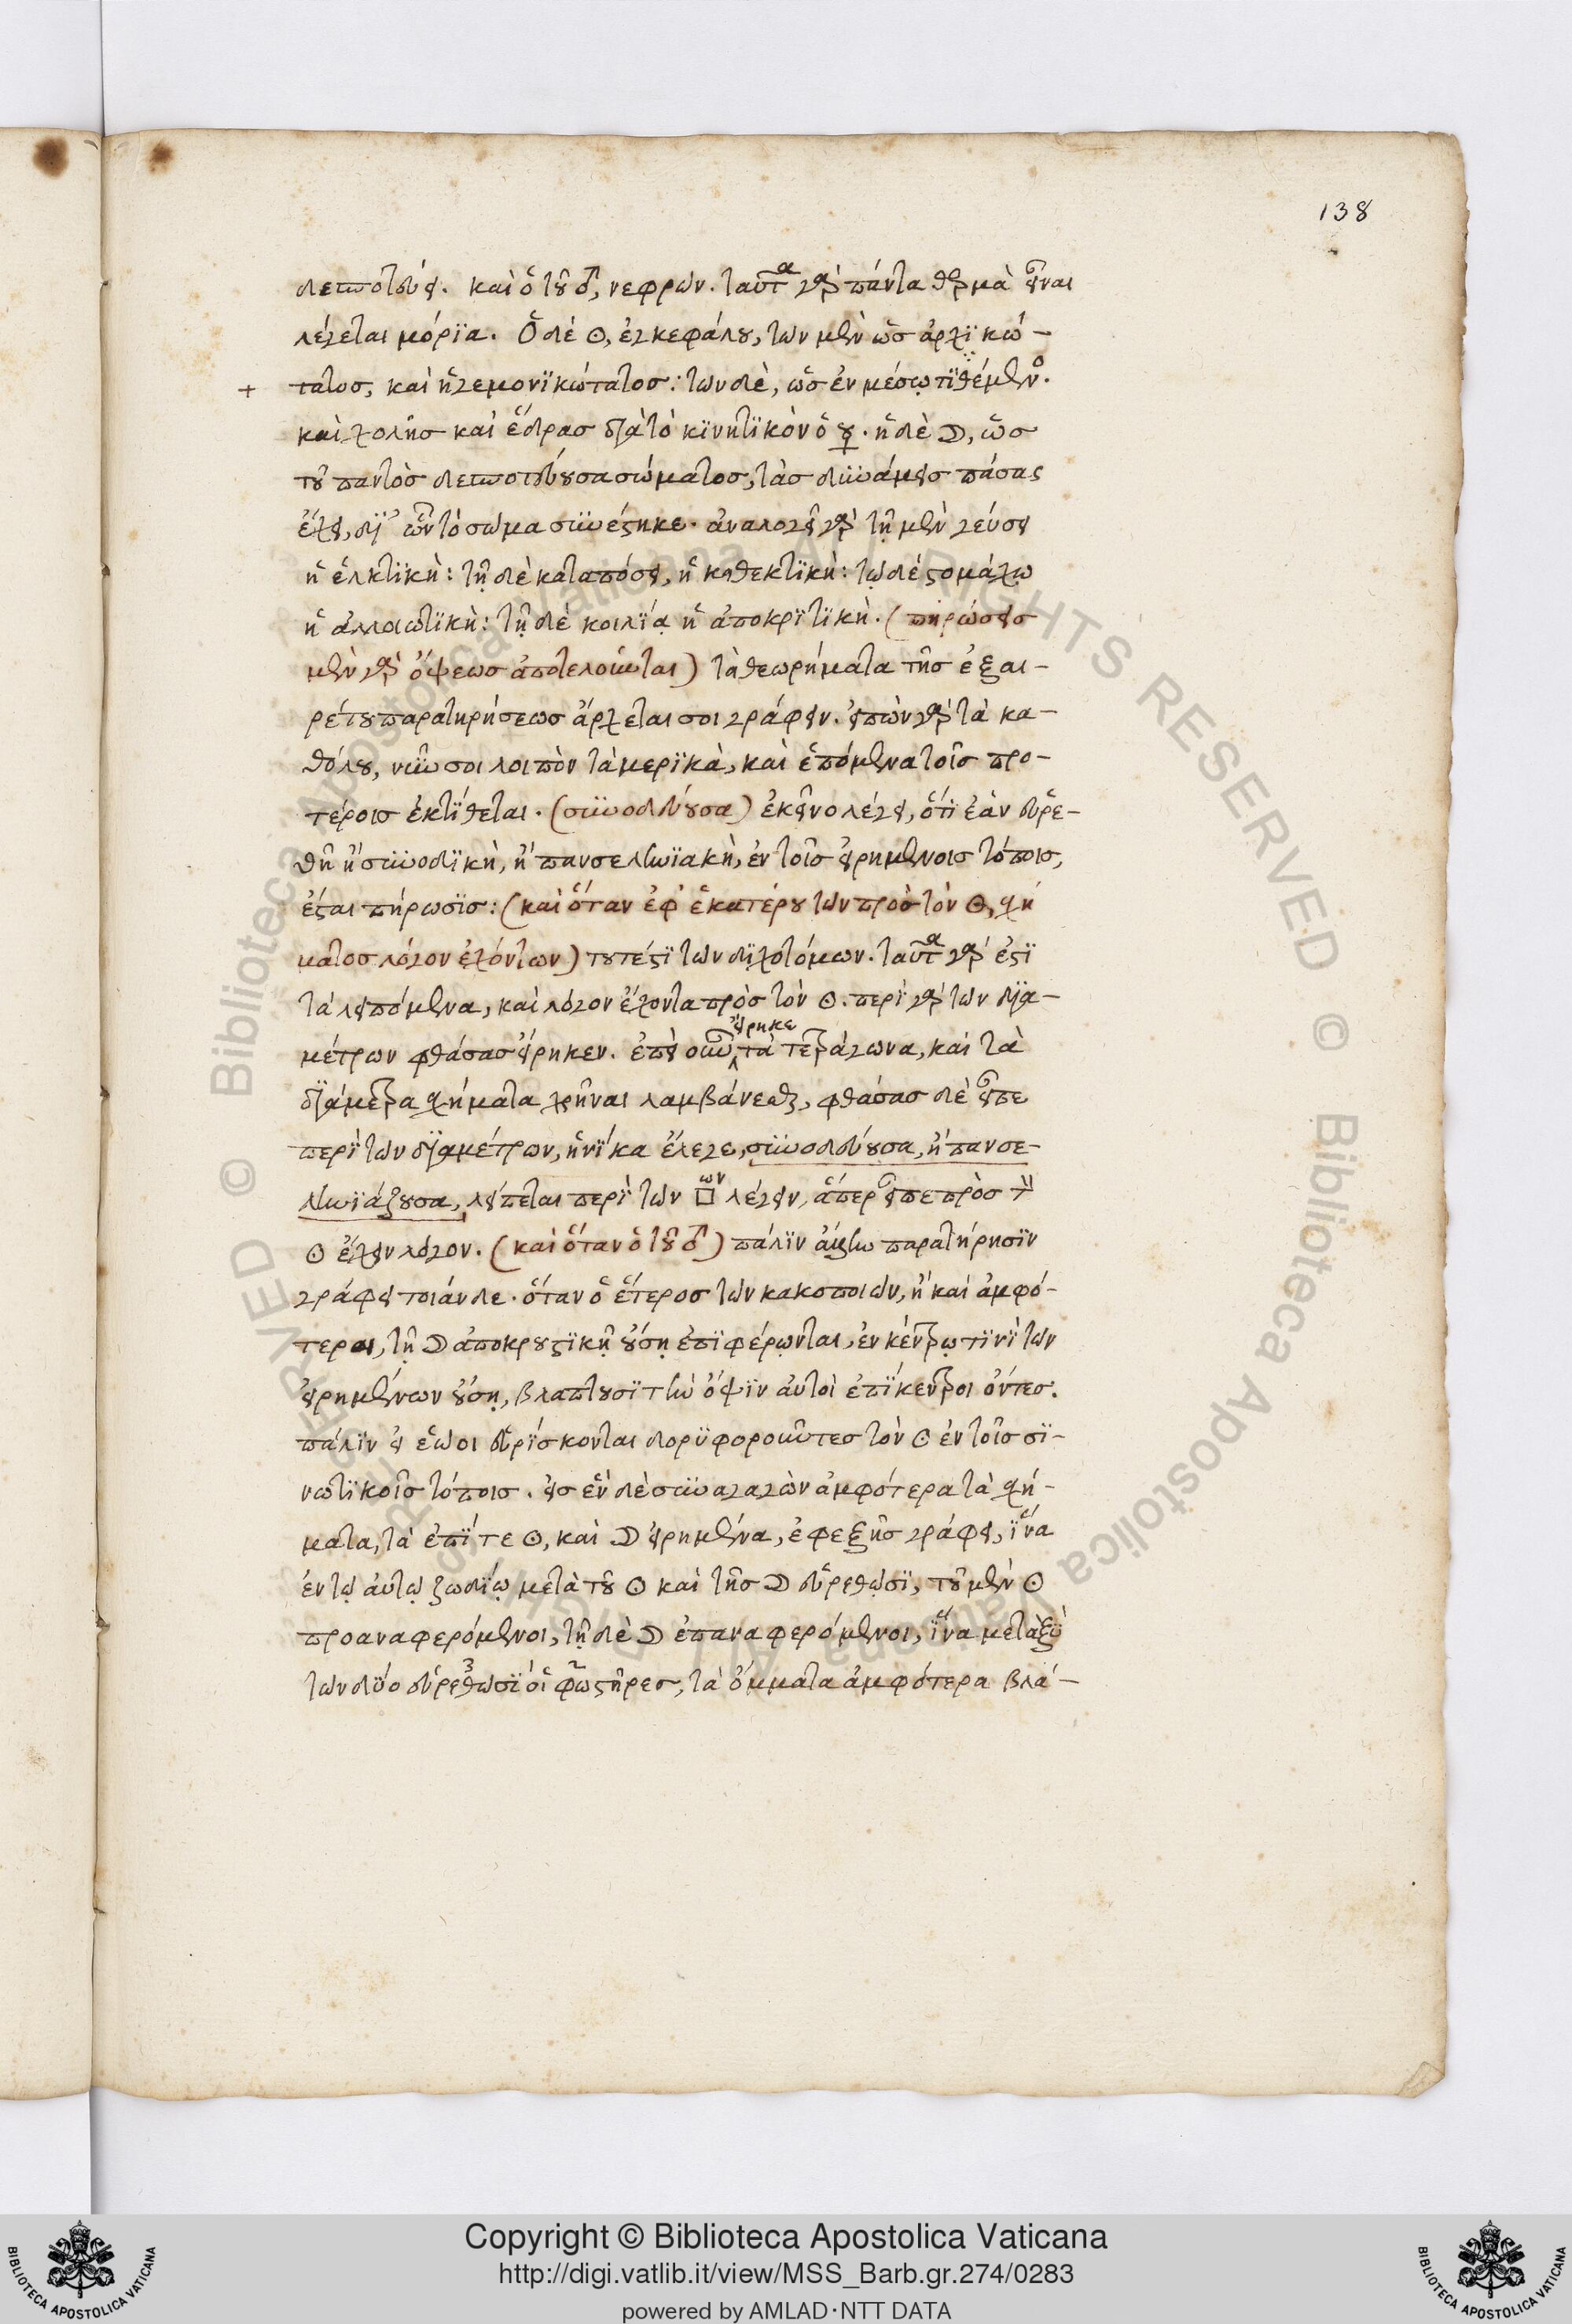 138
δεσποτεύει. καὶ ὁ τοῦ ♂, νεφρῶν. ταῦτα γὰρ πάντα θερμὰ εἶναι
λέγεται μόρϊα. Ὁ δὲ ☉, ἐγκεφάλου, τῶν μὲν ὡς ἀρχϊκώ-
+ τατος, καὶ ἡγεμονϊκώτατος: τῶν δὲ, ὡς ἐν μέσῳ τϊθέμενος.
καὶ χολῆς καὶ ἕδρας διὰ τὸ κϊνητϊκὸν ὁ ☿. ἡ δὲ ☽, ὡς
τοῦ παντὸς δεσποτεύουσα σώματος, τὰς δυνάμεις πάσας
ἔχει, δϊ' ὧν τὸ σῶμα συνέστηκε. ἀναλογεῖ γὰρ τῇ μὲν γεύσει
ἡ ἑλκτϊκὴ: τῇ δὲ καταπόσει, ἡ καθεκτϊκὴ: τῷ δὲ στομάχῳ
ἡ ἀλλοιωτϊκὴ: τῇ δὲ κοιλϊᾴ ἡ ἀποκρϊτϊκὴ. (πηρώσεις
μὲν γὰρ ὄψεως ἀποτελοῦνται) τὰ θεωρήματα τῆς ἐξαι-
ρέτου παρατηρήσεως ἄρχεται σοι γράφειν. εἰπὼν γὰρ τὰ κα-
θόλου, νῦν σοι λοιπὸν τὰ μερϊκὰ, καὶ ἑπόμενα τοῖς προ-
τέροις ἐκτϊθεται. (συνοδεύουσα) ἐκεῖνο λέγει, ὅτϊ ἐὰν εὑρε-
θῇ ἢ συνοδϊκὴ, ἢ πανσεληνϊακὴ, ἐν τοῖς εἰρημένοις τόποις,
ἔσται πήρωσϊς: (καὶ ὅταν ἐφ' ἑκατέρου τῶν πρὸς τὸν ☉, σχή
ματος λόγον ἐχόντων) τουτέστϊ τῶν δϊχοτόμων. ταῦτα γάρ ἐστϊ
τὰ λειπόμενα, καὶ λόγον ἔχοντα πρὸς τὸν ☉. περὶ γὰρ τῶν δϊα-
μέτρων φθάσας εἴρηκεν. ἐπεὶ οὖν εἴρηκε τὰ τετράγωνα, καὶ τὰ
δϊάμετρα σχήματα χρῆναι λαμβάνεσθαι, φθάσας δὲ εἶπε
περὶ τῶν δϊαμέτρων, ἡνϊκα ἔλεγε, συνοδεύουσα, ἢ πανσε-
ληνϊάζουσα, λείπεται περὶ τῶν □ων λέγειν, ἅπερ εἶπε πρὸς τὸν
☉ ἔχειν λόγον. (καὶ ὅταν ὁ τοῦ ♂) πάλϊν αὐτὴν παρατήρησϊν
γράφει τοιάνδε. ὅταν ὁ ἕτερος τῶν κακοποιῶν, ἢ καὶ ἀμφό-
τεροι, τῇ ☽ ἀποκρουστϊκῇ οὔσῃ ἐπϊφέρωνται, ἐν κέντρῳ τϊνϊ τῶν
εἰρημένων οὔσῃ, βλάπτουσϊ τὴν ὄψϊν αὐτοὶ ἐπϊκεντροι ὄντες.
πάλϊν εἰ ἑῷοι εὑρϊσκονται δορϋφοροῦντες τὸν ☉ ἐν τοῖς σϊ-
νωτϊκοῖς τόποις. εἰς ἓν δὲ συναγαγὼν ἀμφότερα τὰ σχή-
ματα, τὰ ἐπϊ τε ☉, καὶ ☽ εἰρημένα, ἐφεξῆς γράφει, ἵνα
ἐν τῷ αὐτῷ ζωδϊῳ μετὰ τοῦ ☉ καὶ τῆς ☽ εὑρεθῶσϊ, τοῦ μὲν ☉
προαναφερόμενοι, τῇ δὲ ☽ ἐπαναφερόμενοι, ἵνα μεταξϋ
τῶν δϋο εὑρεθῶσϊ οἱ φωστῆρες, τὰ ὄμματα ἀμφότερα βλά-
BIBLIOTECA APOSTOLICA VATICANA
Copyright © Biblioteca Apostolica Vaticana
http://digi.vatlib.it/view/MSS_Barb.gr.274/0283
powered by AMLAD·NTT DATA
BIBLIOTECA APOSTOLICA VATICANA